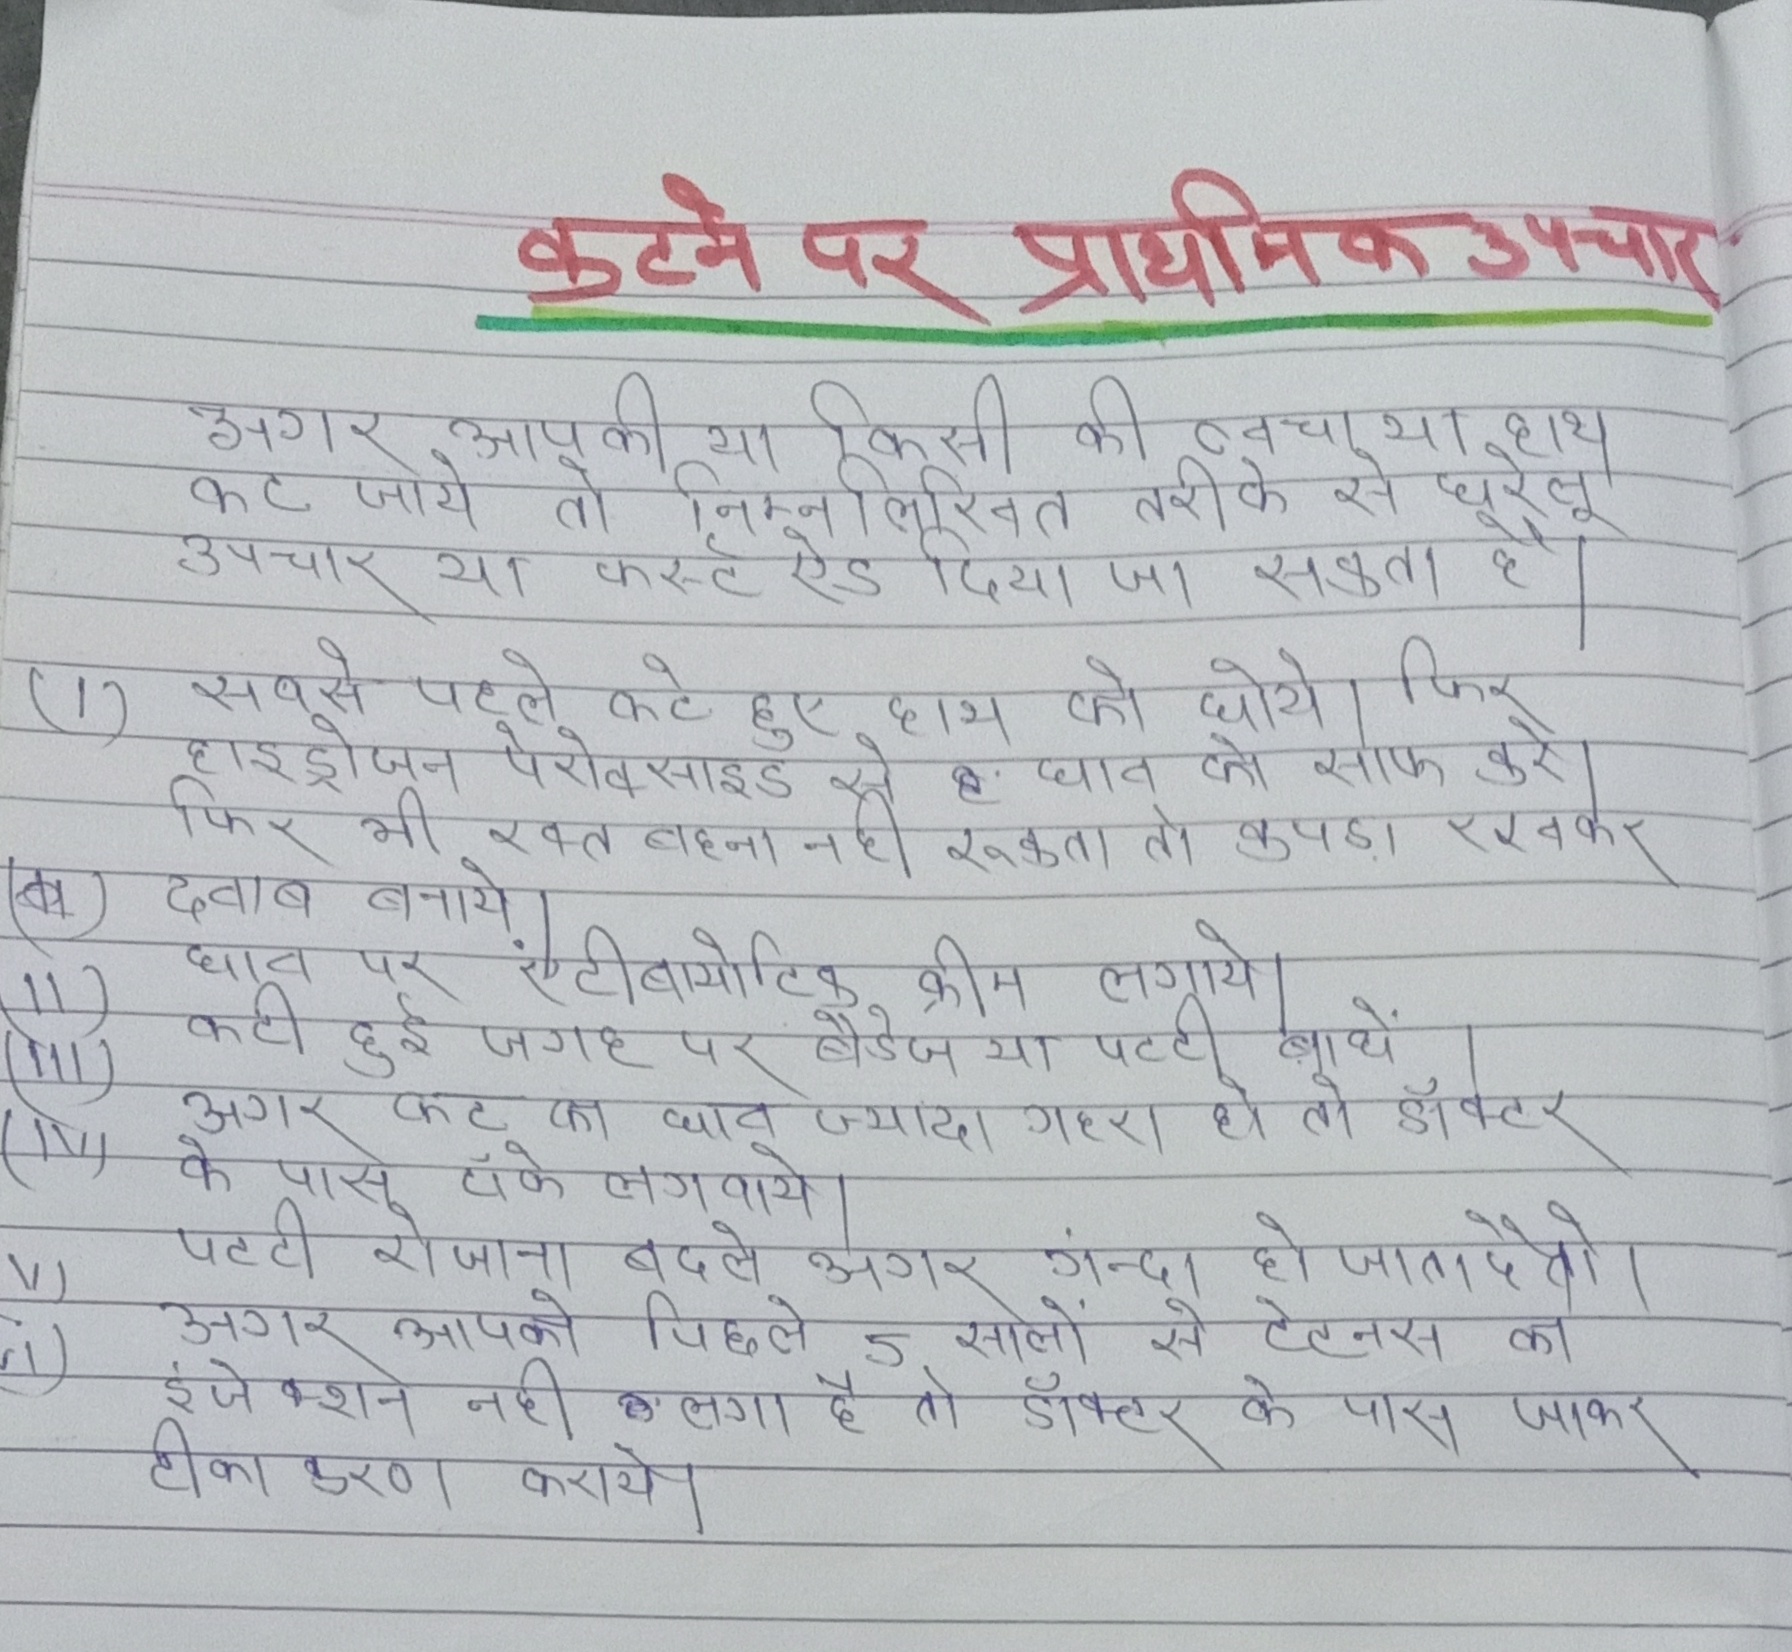 कटने पर प्राथमिक उपचार
अगर आपकी या किसी की त्वचा या हाथ
कट जाये तो निम्नलिखित तरीके से घरेलू
उपचार या फर्स्ट ऐड दिया जा सकता है।
(I) सबसे पहले कटे हुए हाथ को धोये। फिर
हाइड्रोजन पेरोक्साइड से घाव को साफ करे।
फिर भी रक्त बहना नही रूकता तो कपड़ा रखकर
दवाब बनाये।
II) घाव पर एंटीबायोटिक क्रीम लगाये।
(III) कटी हुई जगह पर बैंडेज या पटटी बाधें।
(IV) अगर कट का घाव ज्यादा गहरा हो तो डॉक्टर
के पास टॉके लगवाये।
V) पटटी रोजाना बदले अगर गंन्दा हो जाता है तो।
VI) अगर आपको पिछले 5 सालों से टेटनस का
इंजेक्शन नही लगा है तो डॉक्टर के पास जाकर
टीकाकरण कराये।